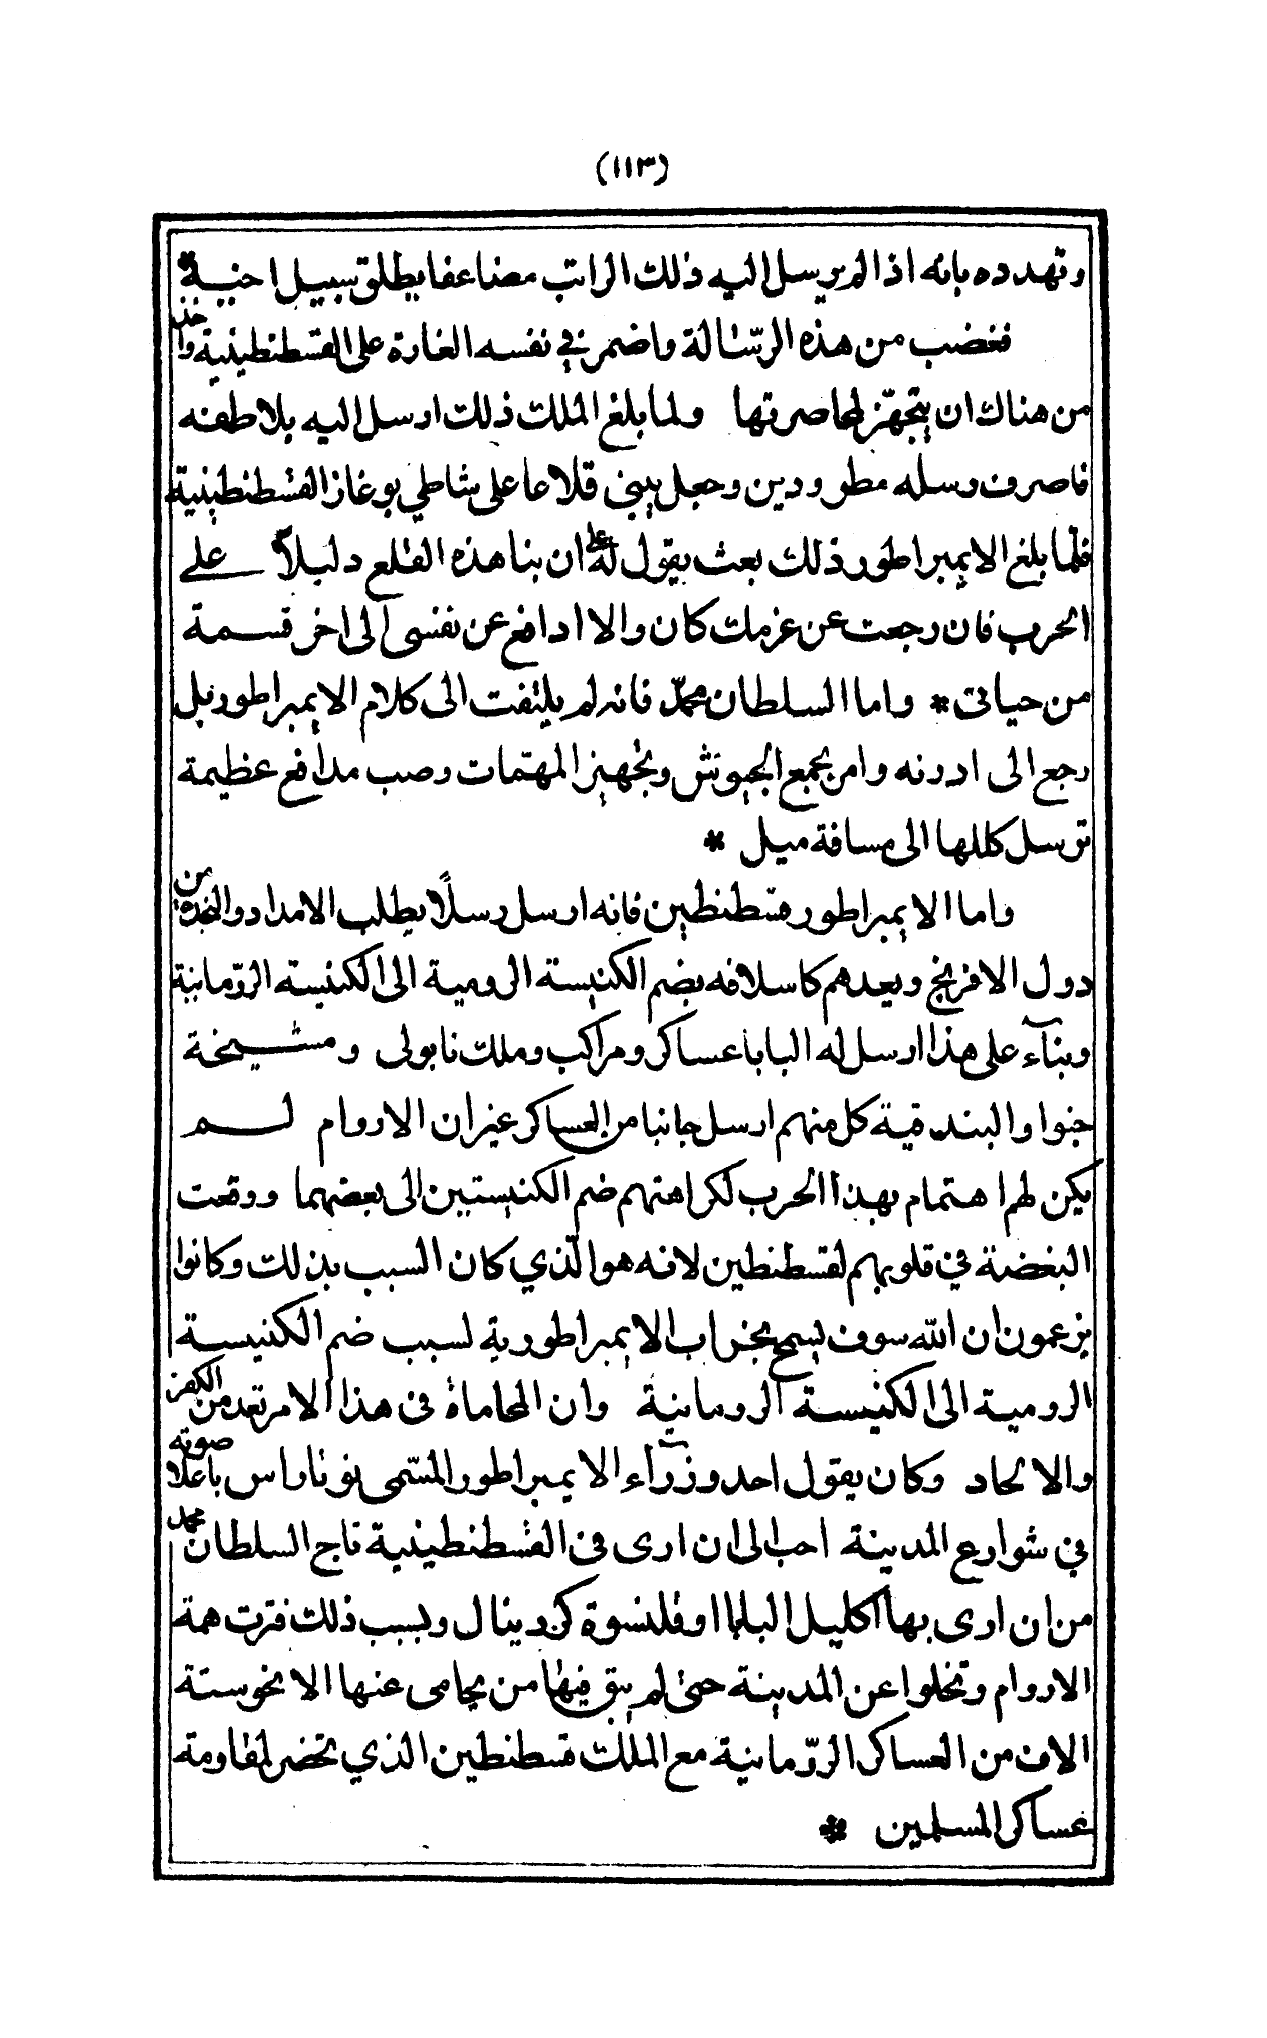 (١١٣)
وتهدده بانه اذا لم يرسل اليه ذلك الراتب مضاعفا يطلق سبيل اخيه *
فغضب من هذه الرسالة واضمر في نفسه الغارة على القسطنطينية واخذ
من هناك ان يتجهّز لمحاصرتها ولما بلغ الملك ذلك ارسل اليه يلاطفه
فاصرف رسله مطرودين وجعل يبنى قلاعا على شاطي بوغاز القسطنطينية
فلمّا بلغ الايمبراطور ذلك بعث يقول له ان بنا هذه القلع دليلاً على
الحرب فان رجعت عن عزمك كان والا ادافع عن نفسى الى اخر قسمة
من حياتى * واما السلطان محمّد فانه لم يلتفت الى كلام الايمبراطور بل
رجع الى ادرنه وامر بجمع الجيوش وتجهيز المهمّات وصب مدافع عظيمة
توسل كللها الى مسافة ميل *
واما الايمبراطور قسطنطين فانه ارسل رسلاً يطلب الامداد والنجدة من
دول الافرنج ويعدهم كاسلافه بضم الكنيسة الرومية الى الكنيسة الرومانية
وبنآء على هذا ارسل له البابا عساكر ومراكب وملك نابولى ومشيخة
جنوا والبندقية كل منهم ارسل جانبا من العساكر غير ان الاروام لم
يكن لهم اهتمام بهذا الحرب لكراهتهم ضم الكنيستين الى بعضهما ووقعت
البغضة في قلوبهم لقسطنطين لانه هو الّذي كان السبب بذلك وكانوا
يزعمون ان الله سوف يسمح بخراب الايمبراطورية لسبب ضم الكنيسة
الرومية الى الكنيسة الرومانية وان المحاماة في هذا الامر تعد من الكفر
والالحاد وكان يقول احد وزرآء الايمبراطور المسمّى نوتاراس باعلا صوته
في شوارع المدينة احب الى ان ارى في القسطنطينية تاج السلطان محمد
من ان ارى بها اكليل البابا او قلنسوة كردينال وبسبب ذلك فترت همة
الاروام وتخلوا عن المدينة حتى لم يبق فيها من يحامى عنها الا نحو ستة
الاف من العساكر الرومانية مع الملك قسطنطين الذي تحضر لمقاومة
عساكر المسلمين *